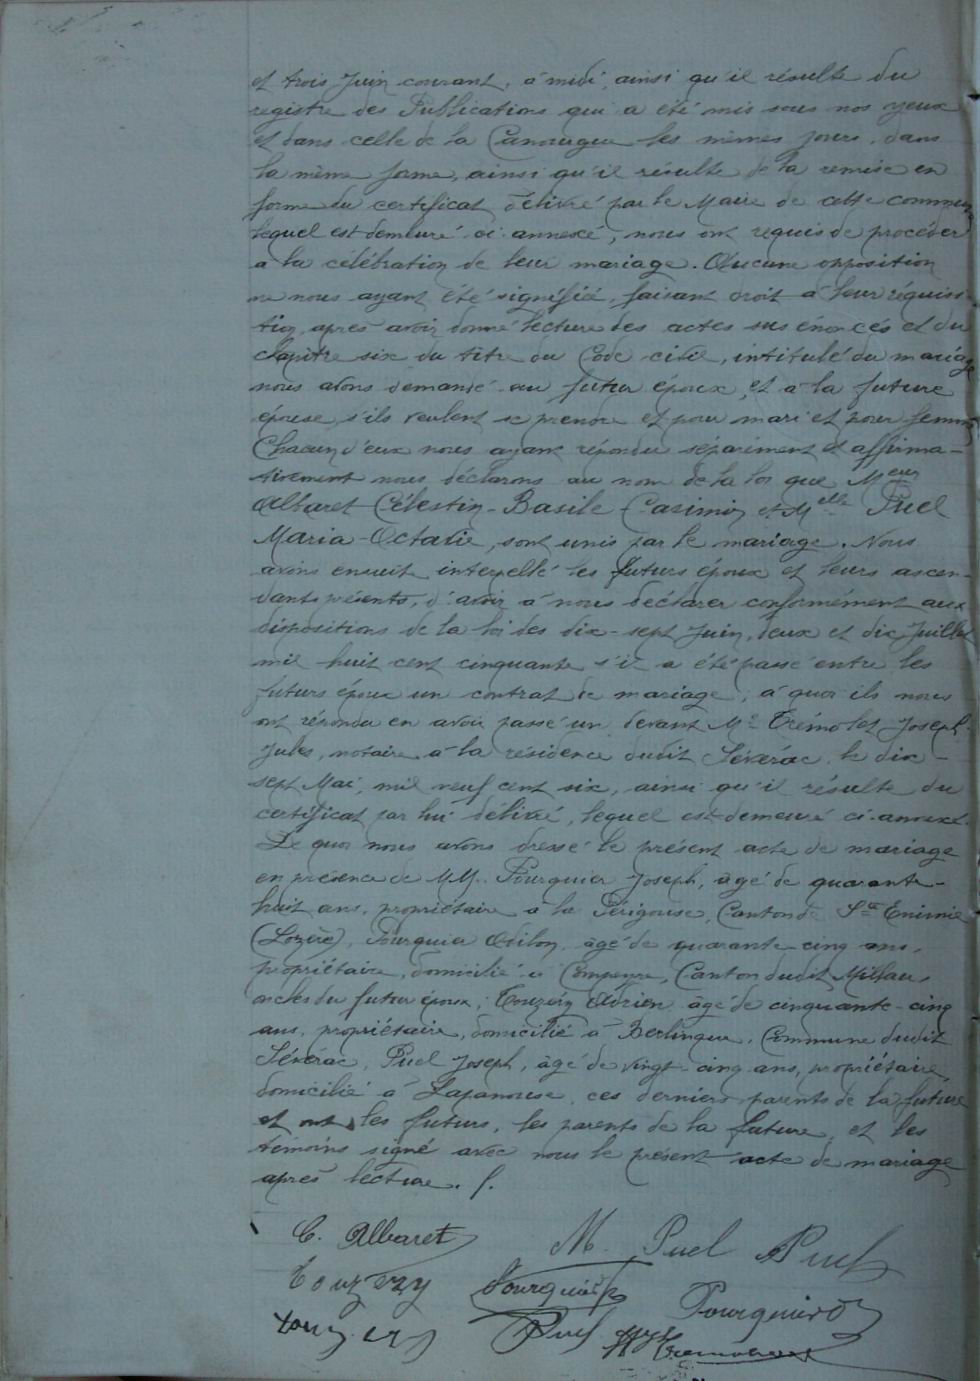 et trois Juin courant, à midi, ainsi qu'il résulte du
registre des Publications qui a été mis sous nos yeux
et dans celle de la Canourgue les mêmes jours, dans
la même forme, ainsi qu'il résulte de la remise en
forme du certificat délivré par le Maire de cette commune
lequel est demeuré ci annexé, nous ont requis de procéder
à la célébration de leur mariage. Aucune opposition
ne nous ayant été signifiée, faisant droit à leur réquisi-
tion, après avoir donné lecture des actes sus énoncés et du
chapitre six du titre du Code civil, intitulé du mariage
nous avons demandé au futur époux, et à la future
épouse s'ils veulent se prendre et pour mari et pour femme
Chacun d'eux nous ayant répondu séparément et affirma-
tivement nous déclarons au nom de la loi que Meur
Albaret Célestin-Basile Casimir et Melle Puel
Maria-Octavie, sont unis par le mariage. Nous
avons ensuite interpellé les futurs époux et leurs ascen-
dants présents, d'avoir à nous déclarer conformément aux
dispositions de la loi des dix-sept Juin, deux et dix Juillet
mil huit cent cinquante s'il a été passé entre les
futurs époux un contrat de mariage, à quoi ils nous
ont répondu en avoir passé un devant Me Trémolet Joseph-
Jules, notaire à la résidence dudit Sévérac, le dix-
sept Mai, mil neuf cent six, ainsi qu'il résulte du
certificat par lui délivré, lequel est demeuré ci-annexé.
De quoi nous avons dressé le présent acte de mariage
en présence de MM. Pourquier Joseph, âgé de quarante-
huit ans, propriétaire à la Périgouse, Canton de Ste Enimie
(Lozère), Pourquier Odilon, âgé de quarante cinq ans,
propriétaire, domicilié à Compeyre, Canton dudit Millau,
oncles du futur époux, Touzery Adrien âgé de cinquante-cinq
ans, propriétaire, domicilié à Berlingue, Commune dudit
Sévérac, Puel Joseph, âgé de vingt-cinq ans, propriétaire,
domicilié à Lapanouse, ces derniers parents de la future
et ont les futurs, les parents de la future, et les
témoins signé avec nous le présent acte de mariage
après lecture.
C. Albaret M. Puel Puel
Touzery Pourquier Pourquier O
Puel